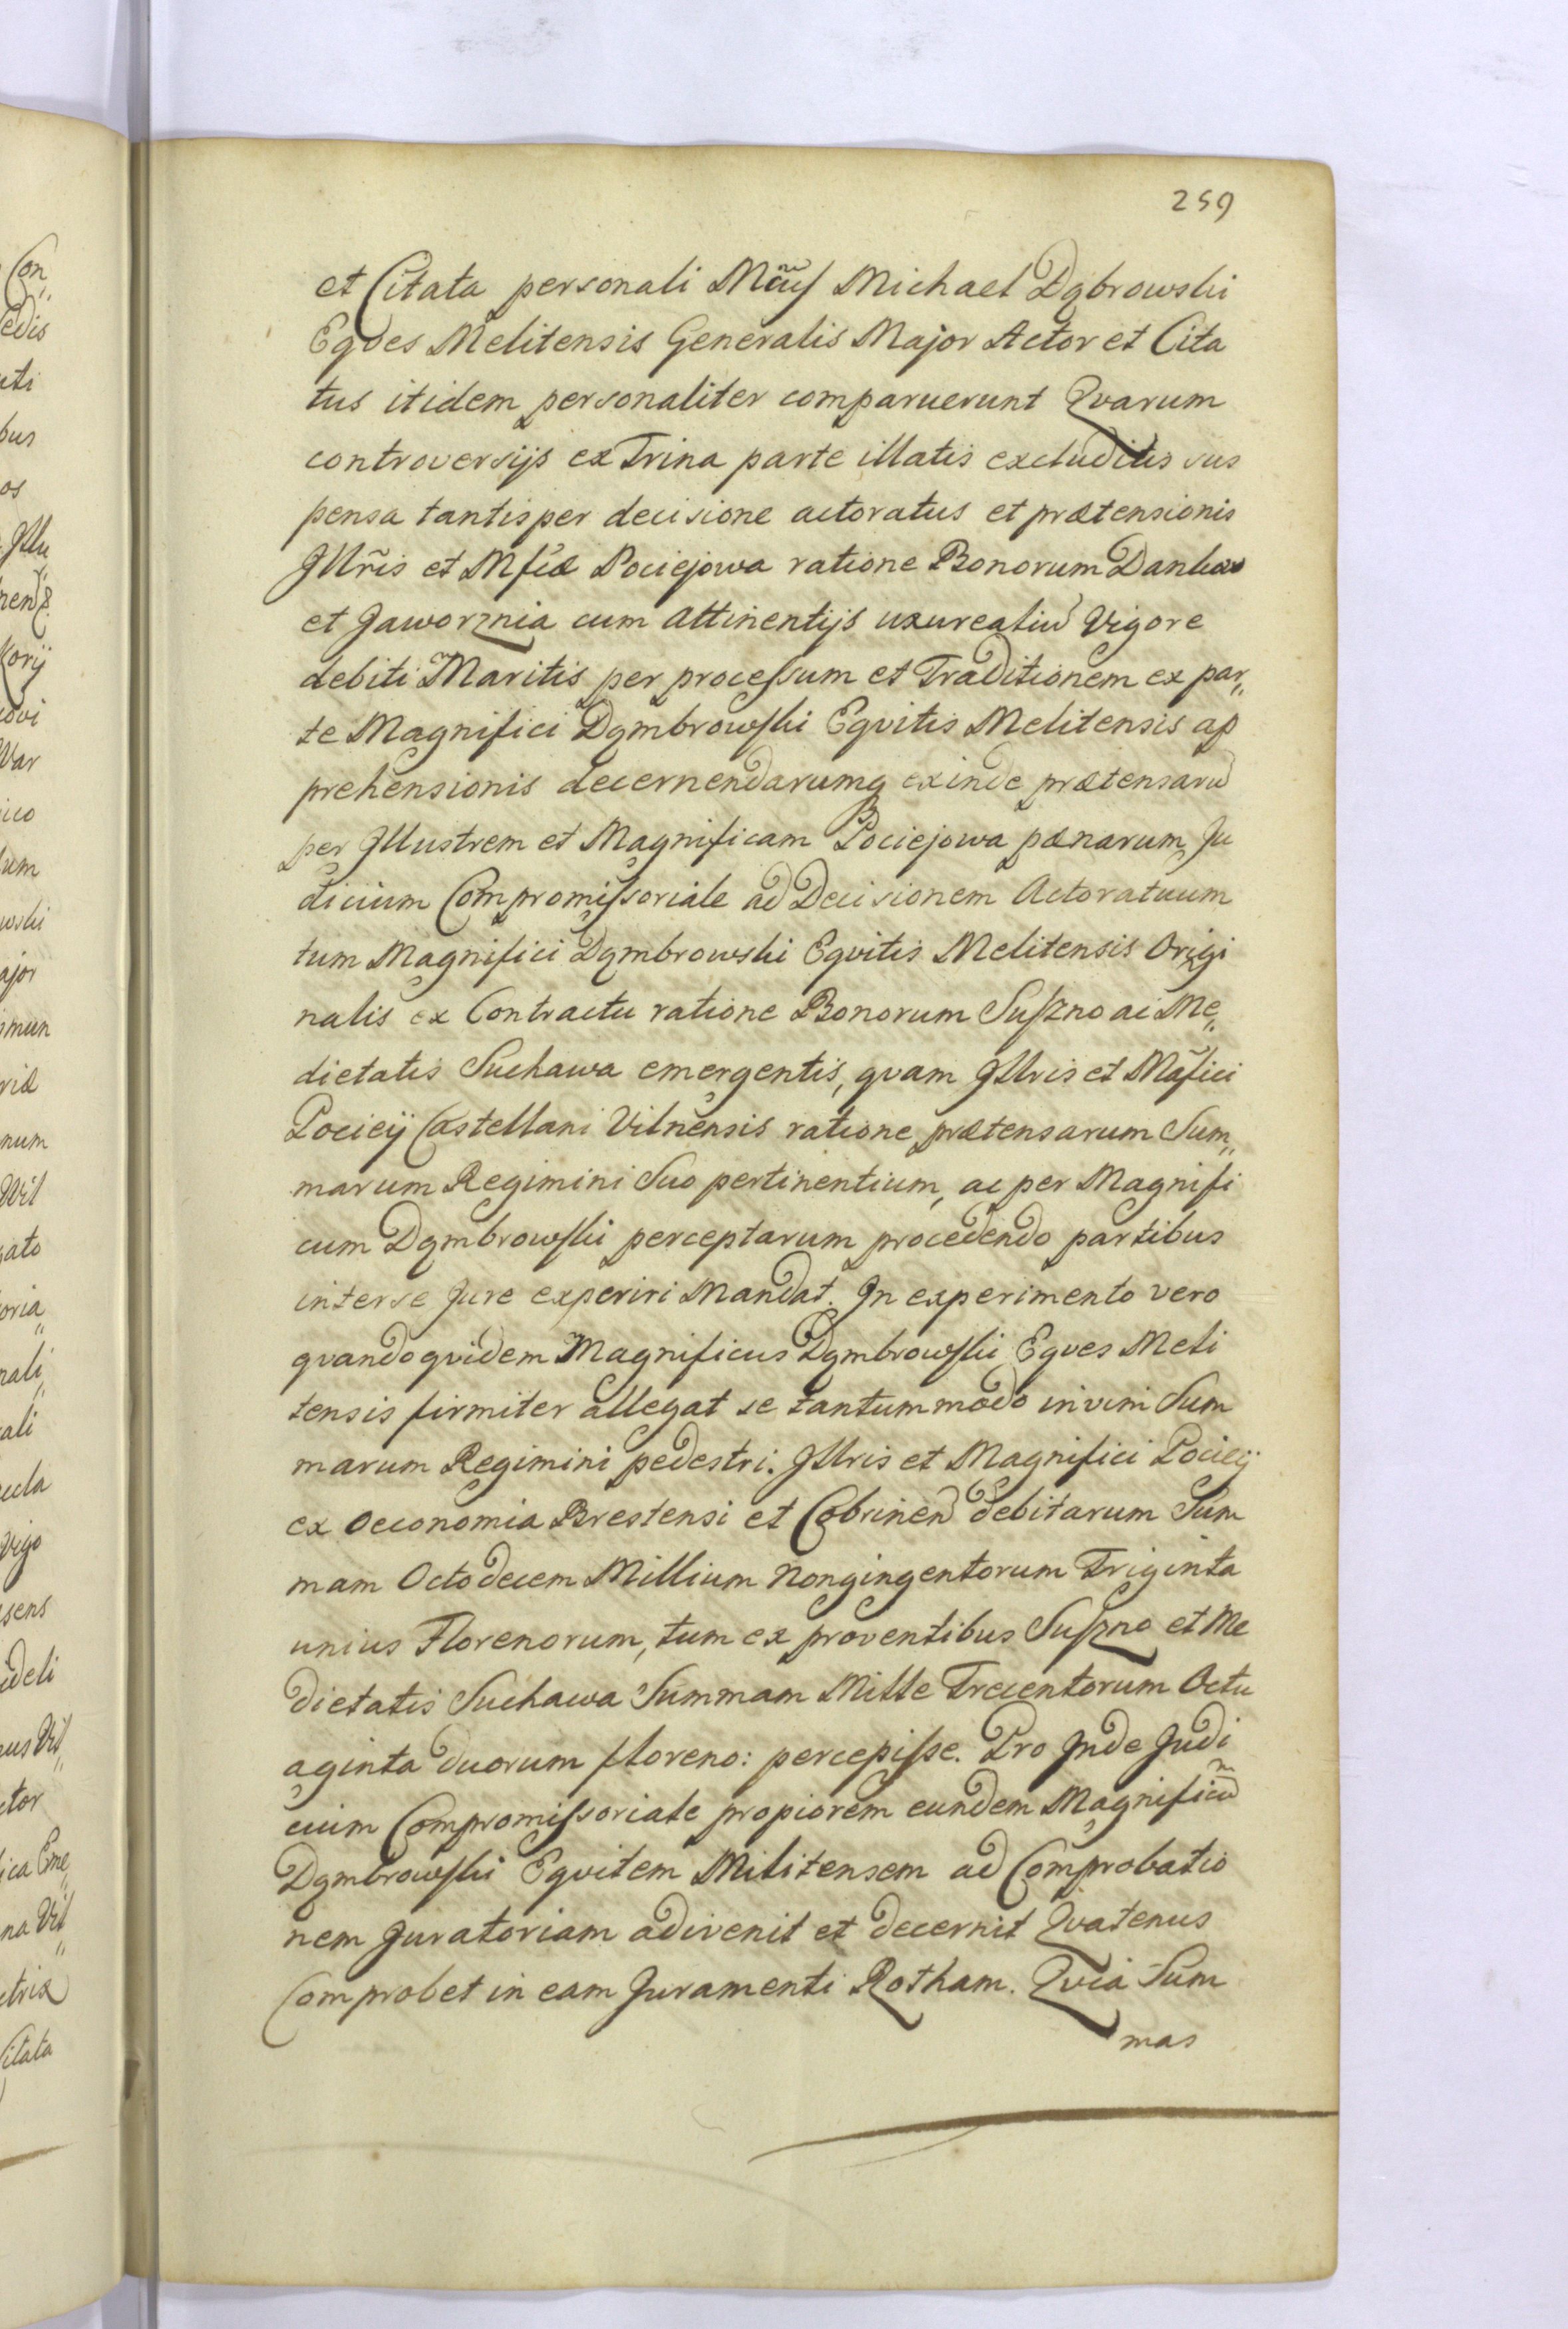 259
et Citata personali Mcus Michael Dąbrowski
Eqves Melitensis Generalis Major Actor et Cita
tus itidem personaliter comparuerunt Qvarum
controversijs ex Trina parte illatis excluditis sus
pensa tantisper decisione actoratus et prætensionis
Jllris et Mficæ Pociejowa ratione Bonorum Dankow
et Jaworznia cum attinentijs uxurealiu Vigore
debiti Maritis per processum et Traditionem ex par„
te Magnifici Dąmbrowski Eqvitis Melitensis ap
prehensionis decernendarumq exinde prætensaru
per Jllustrem et Magnificam Pociejowa pænarum Ju
dicium Compromissoriale ad Decisionem Actoratuum
tum Magnifici Dąmbrowski Eqvitis Melitensis Origi
nalis ex Contractu ratione Bonorum Suszno ac Me„
dietatis Suchawa emergentis, qvam Jllris et Mafici
Pociey Castellani Vilnensis ratione prætensarum Sum„
marum Regimini Suo pertinentium, ac per Magnifi
cum Dąmbrowski perceptarum procedendo partibus
inter se Jure experiri Mandat. Jn experimento vero
qvandoqvidem Magnificus Dąmbrowski Eqves Meli
tensis firmiter allegat se tantummodo in vim Sum
marum Regimini pedestri. Jllris et Magnifici Pociey
ex Oeconomia Brestensi et Cobrinen debitarum Sum
mam Octodecem Millium Nongingentorum Triginta
unius Florenorum, tum ex proventibus Suszno et Me
dietatis Suchawa Summam Mille Trecentorum Octu
aginta duorum floreno: percepisse. Pro Jnde Judi
cium Compromissoriale propiorem eundem Magnificu
Dąmbrowski Eqvitem Militensem ad Comprobatio
nem Juratoriam adivenit et decernit Qvatenus
Comprobet in eam Juramenti Rotham. Qvia Sum
mas